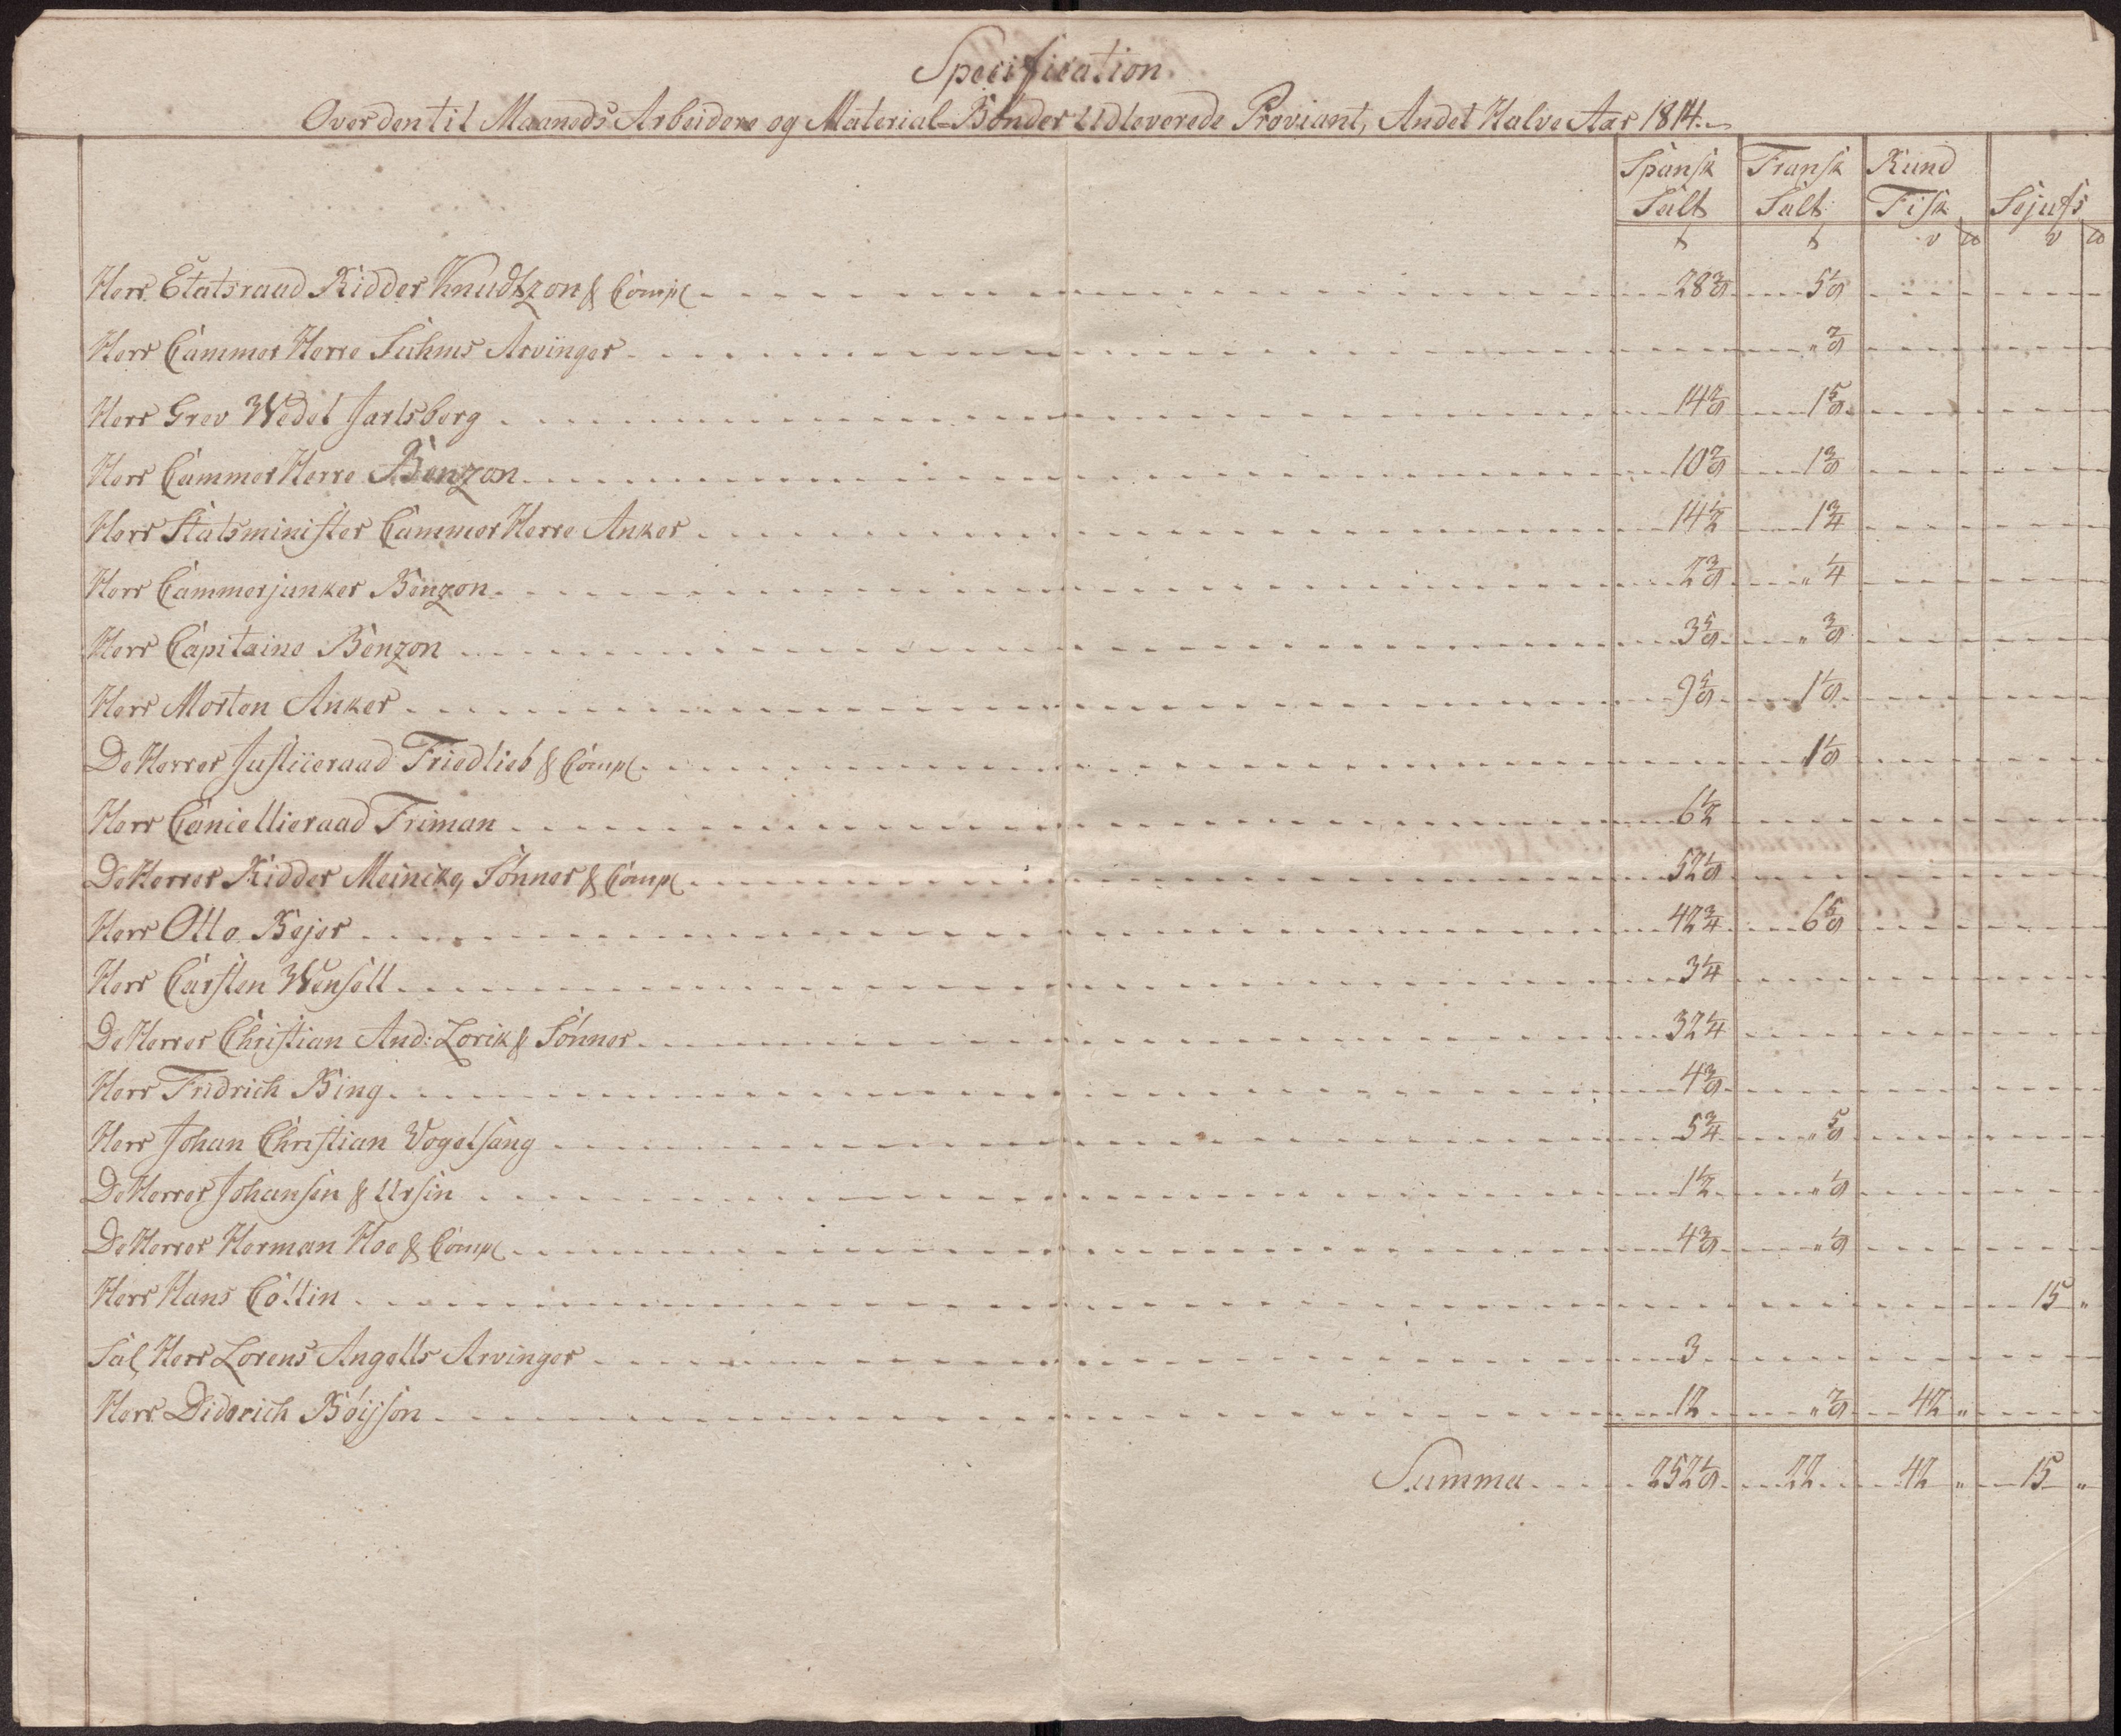 Specification
Over den til Maaneds Arbeidere og Material-Bönder Udleverede Proviant, Andet Halve Aar 1814.
Spansk Salt Fransk Salt Rund Fisk Sejufs
Herr Etatsraad Ridder Knudtzon & Comp 28 3/8 5 1/8
Herr Cammer Herre Suhms Arvinger " 7/8
Herr Grev Wedel Jarlsberg 14 7/8 1 5/8
Herr Cammer Herre Benzon 10 7/8 1 3/8
Herr Statsminister Cammer Herre Anker 14 1/2 1 3/4
Herr Cammerjunker Benzon 2 3/8 " 1/4
Herr Capitaine Benzon 3 5/8 " 3/8
Herr Morten Anker 9 5/8 1 1/8
De Herrer Justiceraad Friedlieb & Comp 1 1/8
Herr Cancellieraad Friman 6 1/2
De Herrer Ridder Meincke, Sönner & Comp 52 1/8
Herr Otto Bejer 42 3/4 6 5/8
Herr Carsten Wensell 3 1/4
De Herrer Christian And: Lorik & Sönner 32 1/4
Herr Fridrich Bing 4 3/8
Herr Johan Christian Vogelsang 5 3/4 " 5/8
De Herrer Johansen & Ursin 1 1/2 " 1/8
De Herrer Herman Hoe & Comp 4 3/8 " 1/8
Herr Hans Collin 15 "
Sal Herr Lorens Angells Arvinger 3
Herr Diderich Böijson 12 " 7/8 42 "
Summa 252 1/8 22 42 " 15 "